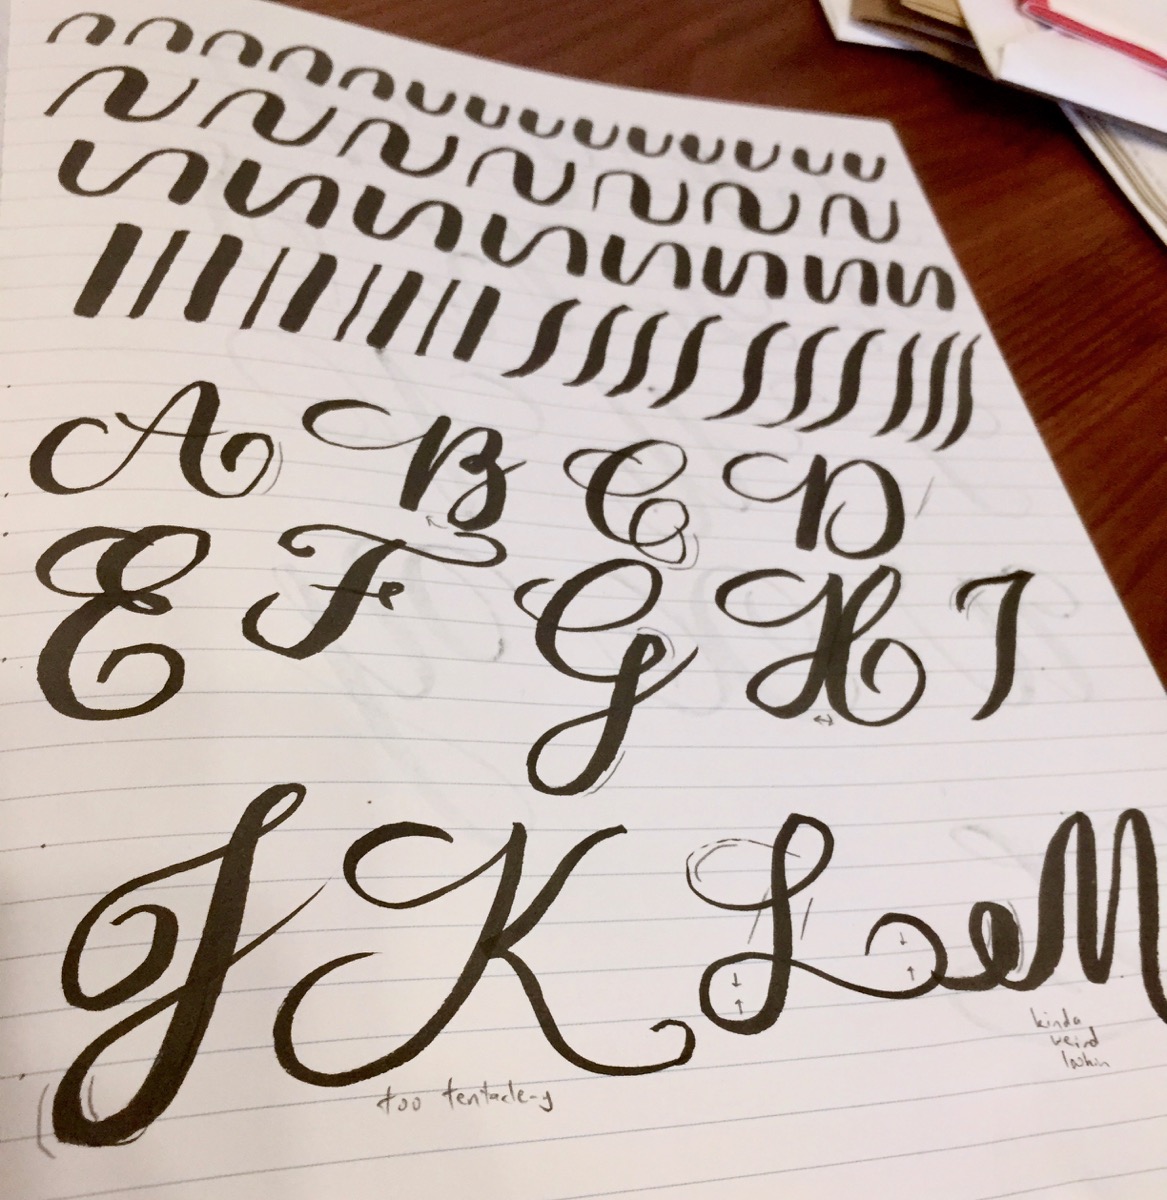 A B C D
E F G H I
J K L M
too tentacle-y
kinda
weird
lookin